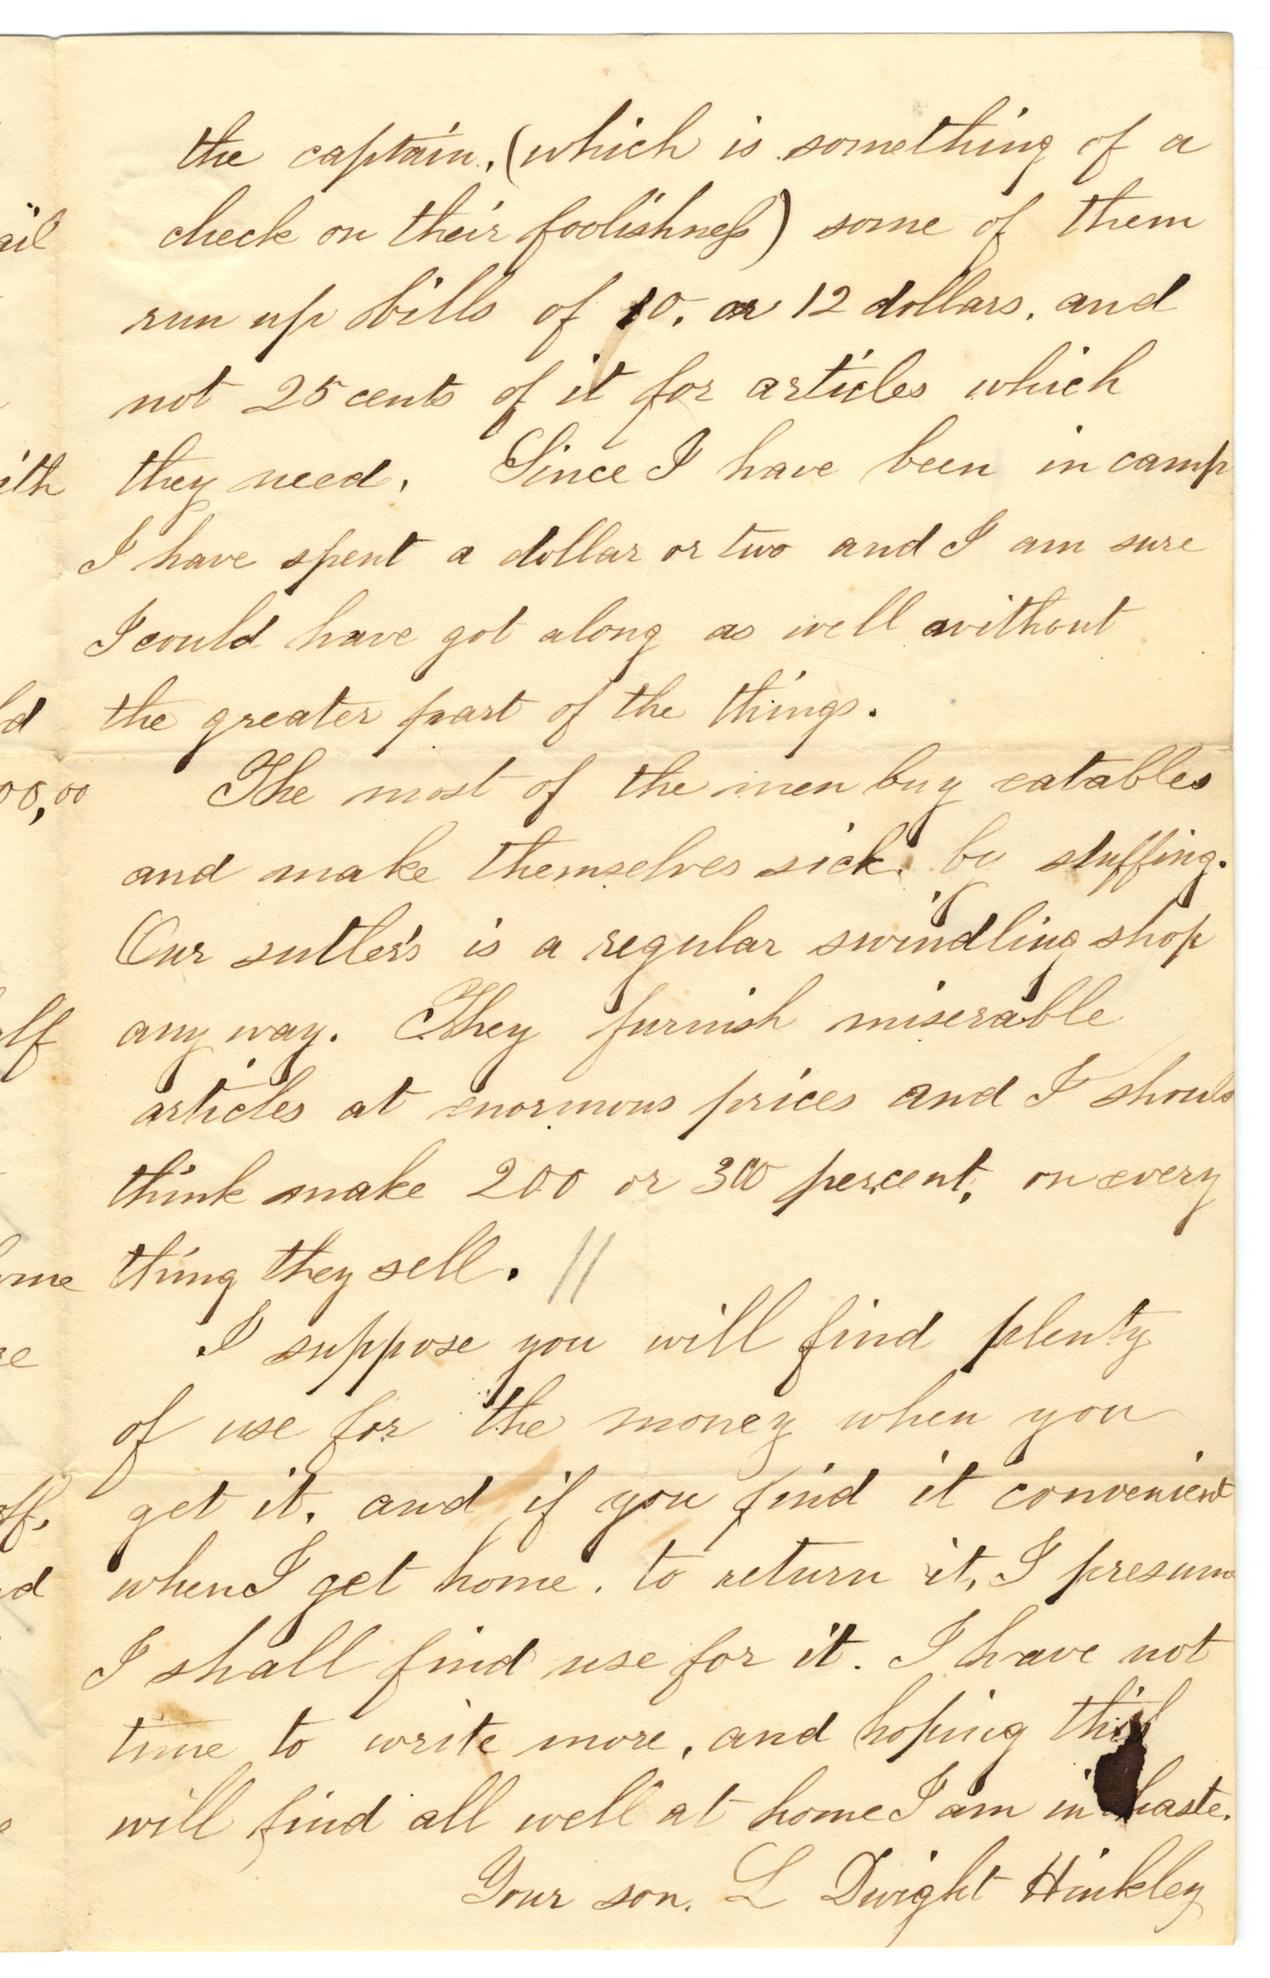 the captain, (which is something of a
check on their foolishness) some of them
run up bills of 10, or 12 dollars, and
not 25 cents of it for articles which
they need. Since I have been in camp
I have spent a dollar or two and I am sure
I could have got along as well without
the greater part of the things.
The most of the men buy eatables
and make themselves sick by stuffing.
Our sutler's is a regular swindling shop
any way. They furnish miserable
articles at enormous prices and I should
think make 200 or 300 percent, on every
thing they sell. //
I suppose you will find plenty
of use for the money when you
get it, and if you find it convenient
when I get home. to return it, I presume
I shall find use for it. I have not
time to write more, and hoping this
will find all well at home I am in haste.
Your son, L Dwight Hinkley
ail
ith
ld
00,00
lf
ome
re
off,
d